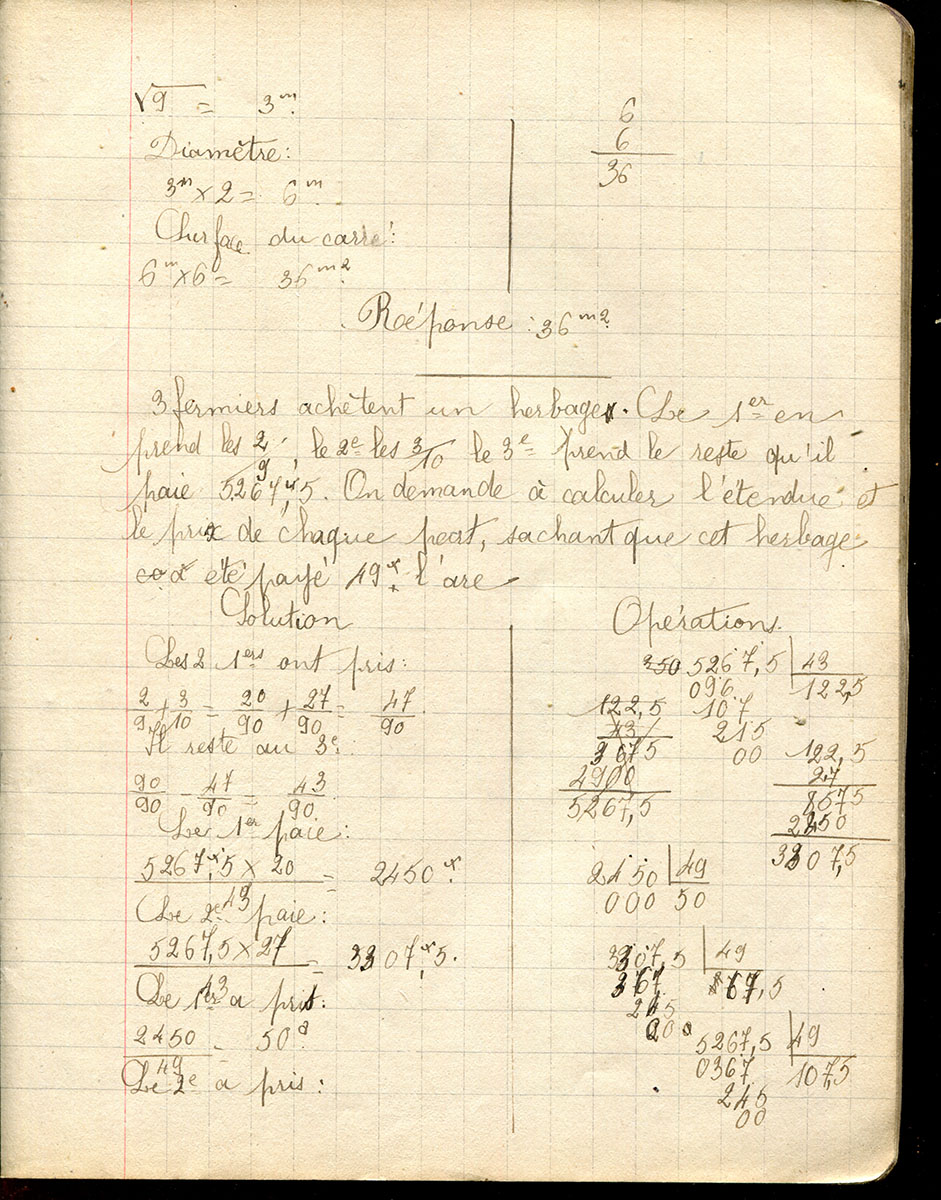 √9 = 3m.
Diamètre:
3m × 2 = 6m
Surface du carré:
6m × 6 = 36m2.
6
6
36
Réponse : 36m2.
3 fermiers achètent un herbage. Le 1er en
prend les 2/9, le 2e les 3/10 le 3e prend le reste qu'il
paie 5267f,5. On demande à calculer l'étendue et
le prix de chaque part, sachant que cet herbage
a été payé 49f. l'are
Solution
Les 2 1ers ont pris:
2/9 + 3/10 = 20/90 + 27/90 = 47/90.
Il reste au 3e:
90/90 - 47/90 = 43/90.
Le 1er paie:
5267f,5 × 20 / 43 = 2450f.
Le 2e paie:
5267,5 × 27 / 43 = 3307f,5.
Le 1er a pris:
2450 / 49 = 50a
Le 2e a pris:
Opérations.
350 5267,5 | 43
096 122,5
107
215
00
122,5
43
3675
4900
5267,5
122,5
27
8575
2450
3307,5
2450 | 49
000 50
3307,5 | 49
367 67,5
245
00
5267,5 | 49
0367 107,5
245
00